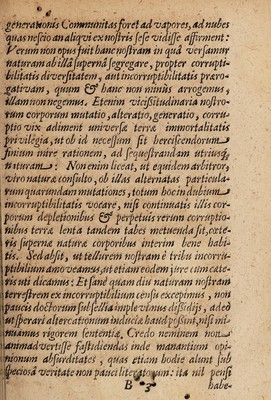 generationis Communitas foret ad vapores, ad nubes
quas nescio an aliqui ex nostris sese vidisse affirment:
Verum non opus fuit hanc nostram in quâ versamur
naturam ab illâ supernâ segregare, propter corrupti-
bilitatis diversitatem, aut incorruptibilitatis præro-
gativam, quum & hanc non minùs arrogemus,
illam non negemus. Etenim vicissitudinaria nostro-
rum corporum mutatio, alteratio, generatio, corru-
ptio vix adiment universæ terræ immortalitatis
privilegia, ut ob id necessum sit herciscendorum
finium inire rationem, ad sequestrandam utriusq;
naturam: Non enim liceat, ut equidem arbitror,
viro naturæ consulto, ob illas alternatas particula-
rum quarundam mutationes, totum hoc in dubium
incorruptibilitatis vocare, nisi continuatis illis cor-
porum depletionibus & perpetuis rerum corruptio-
nibus terræ lenta tandem tabes metuenda sit, cæte-
ris supernæ naturæ corporibus interim bene habi-
tis. Sed absit, ut tellurem nostram è tribu incorru-
ptibilium amoveamus, ut etiam eodem jure cum cæte-
ris uti dicamus: Et sanè quam diu naturam nostram
terrestrem ex incorruptibilium censu excepimus, non
paucis doctorum subsellia implevimus dissidiis, adeò
ut sperari altercationum induciæ haud possint, nisi mi-
nuamus rigorem sententiæ, Credo neminem non
animadvertisse fastidiendas inde manantium opi-
nionum absurditates, quas etiam hodie alunt sub
speciosâ veritate non pauci literatorum: ita nil pensi
B 3 habe-